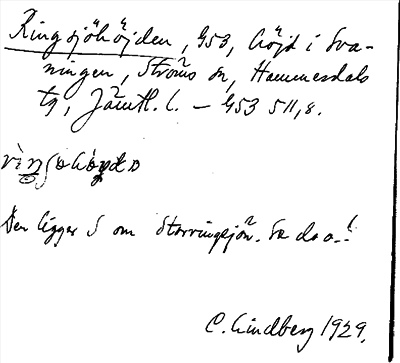 Ringsjöhöjden, 953, höjd i Sva-
ningen, Ströms sn, Hammerdals
tg, Jämtl. l. – 953 511,8.
Den ligger S om Storringsjön. Se d.o.!
C. Lindberg 1929.